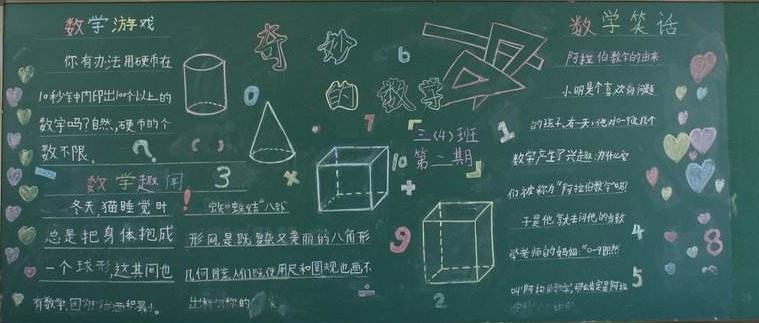 数学游戏
你有办法用硬币在
10秒钟内印出100个以上的
数字吗?自然,硬币的个
数不限。
?
( )
0
奇妙
的数学
6
7
三(4)班
第二期
1
10
+
×
3
9
÷
2
数学趣闻
冬天,猫睡觉时
总是把身体抱成
一个球形,这其间也
有数学,因为
!
蜘蛛
形网,是既复杂又美丽的八角形
几何图案,人们既使用尺和圆规也画不
出
数学笑话
阿拉伯数字的由来
小明是个喜欢问问题
的孩子,有一天,他对0-9这几个
数字产生了兴趣:为什么它
们被称为"阿拉伯数字"呢
于是他就去问他的当数
学老师的妈妈:"0-9既然
叫"阿拉伯数字",那么肯定是阿拉
4
8
5